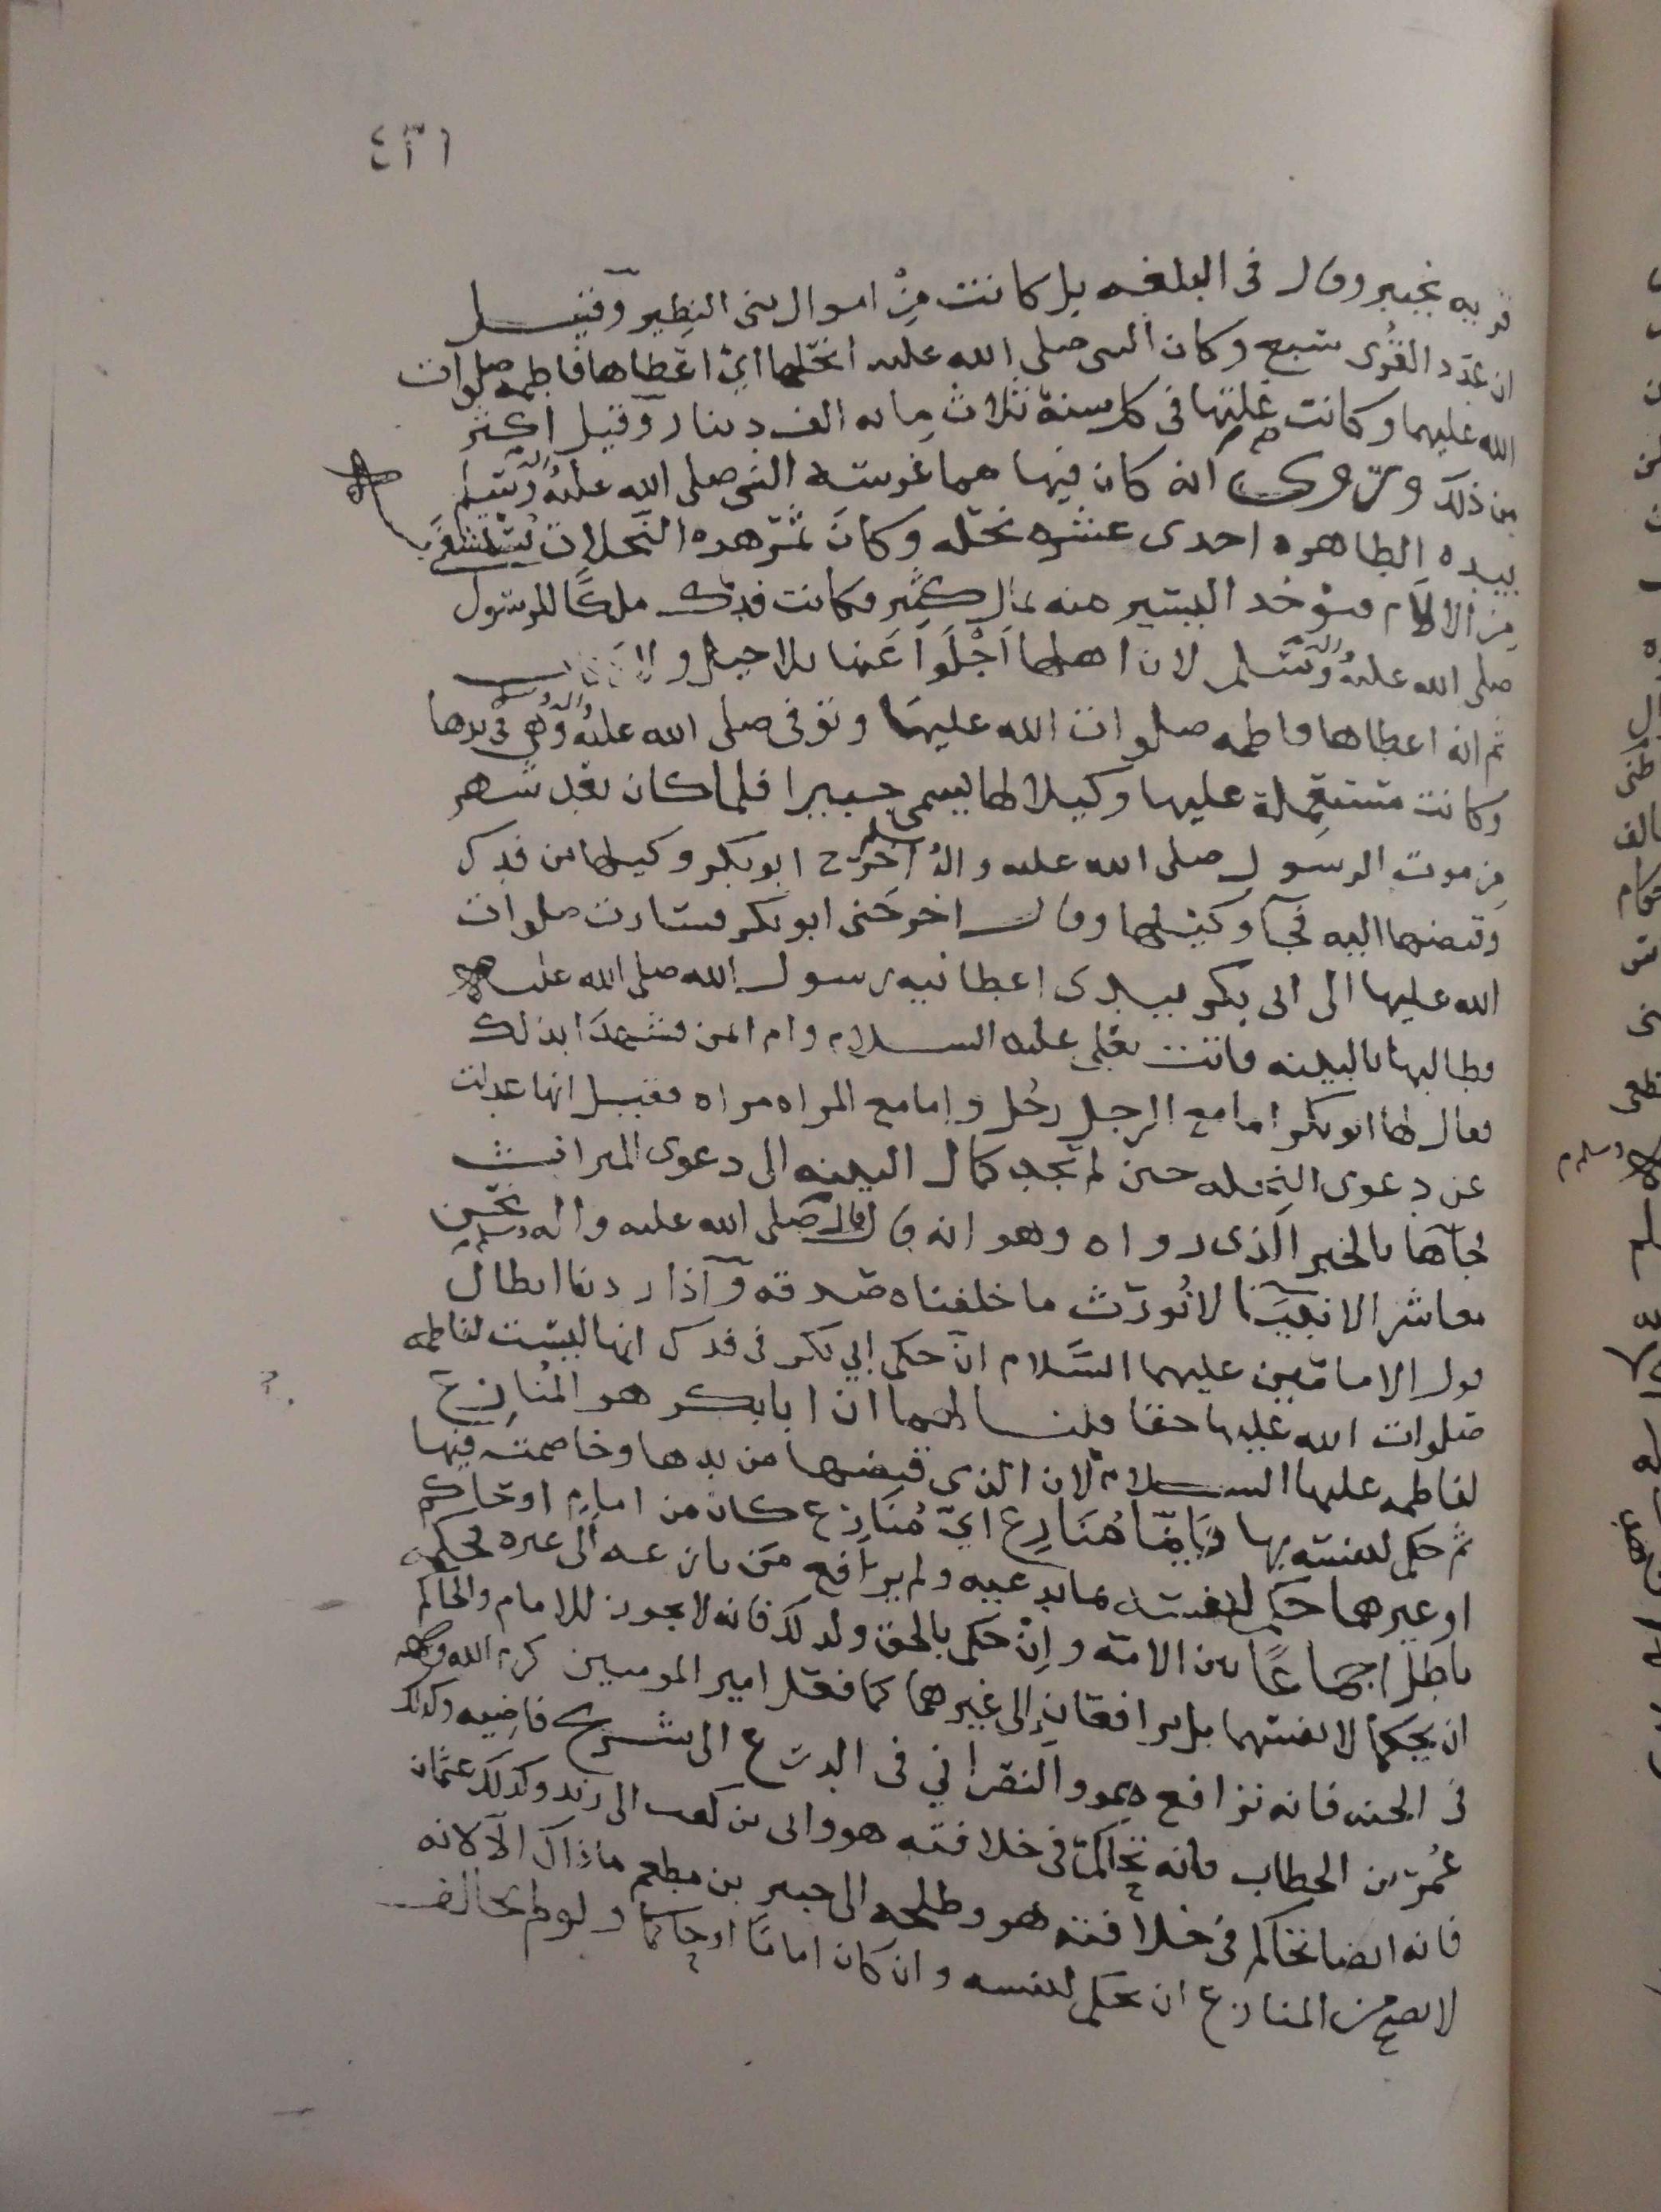 ٤٣١
قريه بخيبر وقال فى البلغه بل كانت مِنْ اموال بنى النظير وقيل
ان عدد القُرى سبع وكان النبى صلى الله عليه انحلها اىْ اعطاها فاطمه صلوات
الله عليهما وكانت غلتها فى كل سنة ثلاث مايه الف دينار وقيل اكثر
من ذلك وروى انه كان فيها مما غرسته النبى صلى الله عليه واله وسلم
بيده الطاهره احدى عشره نخله وكانَ ثمر هده النخلات يستشفى
مِن الالآم فيوخد اليسير منه بمال كثير فكانت فدك ملكًا للرسول
صلى الله عليه واله وسلم لان اهلها اَجْلَوا عَنها بلا خيل ولا ركاب
ثم انه اعطاها فاطمه صلوات الله عليهما وتوفى صلى الله عليه واله وسلم وهي فى يدها
وكانت مستعملة عليها وكيلا لها يسمى جبيرا فلما كان بعد شهر
مِن موت الرسول صلى الله عليه واله وسلم اخرج ابو بكر وكيلها من فدك
وقبضها اليه فجآ وكيلها وقال اخرجنى ابو بكر فسارت صلوات
الله عليها الى ابى بكر بيدى اعطانيه رسول الله صلى الله عليه
فطالبها بالبينه فاتت بعلى عليه السلام وام ايمن فشهدَا بذلك
فقال لها ابو بكر اما مع الرجل رجُل واما مع المراه مراه فقيل انها عدلت
عن دعوى النحله حين لم تجد كمال البينه الى دعوى الميراث
فجآها بالخبر الذى رواه وهو انه قال صلى الله عليه واله وسلم نحن
معاشر الانبيآ لا نُورَث ما خلفناه صدقه وَاذا اردنا ابطال
قول الامامين عليهما السَّلام انّ حكم ابي بكر فى فدك انها ليست لفاطمه
صلوات الله عليها حقا قلنا لهما ان ابا بكر هو المُنازِع
لفاطمه عليها السلام لان الذى قبضها من يدها وخاصمته فيها
ثم حكم لنفسه بها وَايّمَا مُنَازِع ايّ مُنَازِع كان من امام او حاكم
او غيرهما حكم لنفسه بما يدعيه ولم يرافع من نازعه الى غيره فحكمه
باطل اجماعًا بين الامه وانْ حكم بالحق ولذلك فانه لا يجوز للامام والحاكم
ان يحكما لانفسهما بل يرافعان إلى غيرهما كما فعل امير المومنين كرم الله وجهه
فى الجنه فانه ترافع هو والنصراني فى الدرع الى شريح قاضيه وكذلك
عُمر بن الخطاب فانه تحاكم فى خلافته هو وابى بن كعب الى زيد وكذلك عثمان
فانه ايضا تحاكم فى خلافته هو وطلحه الى جبير بن مطعم ماذاك الا لانه
لا يصح من المنازع ان يحكم لنفسه وان كان امامًا او حاكمًا ولو لم يخالف